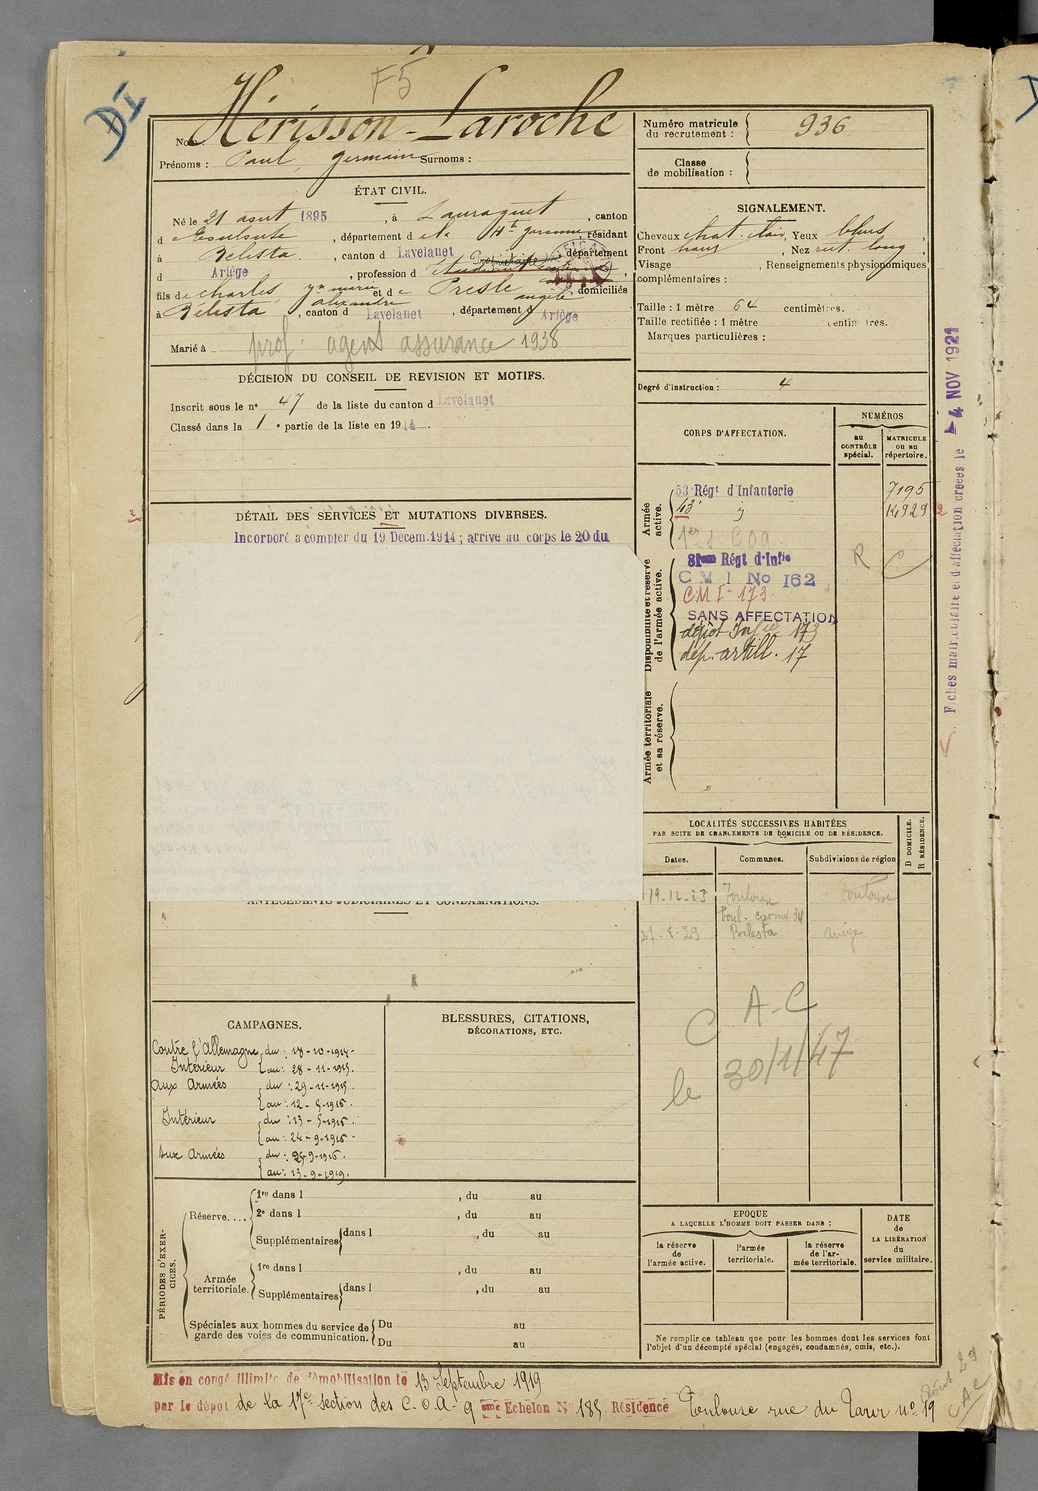 DI
F5
Nom Hérisson-Laroche
Prénoms : Paul, germain Surnoms :
ÉTAT CIVIL.
Né le 21 août 1895, à Lauraguet, canton
d, département d Hte garonne, résidant
à Bélesta, canton d Lavelanet, département
d Ariège, profession d
fils de charles, et de Presle angèle domiciliés
à Bélesta, canton d Lavelanet, département d Ariège
Marié à
prof. agent assurance 1938
DÉCISION DU CONSEIL DE REVISION ET MOTIFS.
Inscrit sous le nº 47 de la liste du canton d Lavelanet
Classé dans la 1e partie de la liste en 1914.
DÉTAIL DES SERVICES ET MUTATIONS DIVERSES.
Incorporé a compter du 19 Décem. 1914 ; arrive au corps le 20 du
ANTÉCÉDENTS JUDICIAIRES ET CONDAMNATIONS.
CAMPAGNES.
Contre l'Allemagne
Intérieur du : 18-10-1914-
au : 28-11-1915.
aux Armées du : 29-11-1915
au : 12-5-1916-
Intérieur du : 13-5-1916-
au : 24-9-1916-
Aux Armées du : 25-9-1916.
au : 13-9-1919.
BLESSURES, CITATIONS,
DÉCORATIONS, ETC.
PÉRIODES D'EXERCICES.
Réserve....
1re dans l, du au
2e dans l, du au
Supplémentaires dans l, du au
Armée territoriale.
1re dans l, du au
Supplémentaires dans l, du au
Spéciales aux hommes du service de garde des voies de communication.
Du au
Du au
Numéro matricule du recrutement : 936
Classe de mobilisation :
SIGNALEMENT.
Cheveux chat. clair, Yeux bleus
Front haut, Nez rect. long
Visage, Renseignements physionomiques
complémentaires :
Taille : 1 mètre 64 centimètres.
Taille rectifiée : 1 mètre centimètres.
Marques particulières :
Degré d'instruction : 4
CORPS D'AFFECTATION.
NUMÉROS
au CONTRÔLE spécial.
MATRICULE ou au répertoire.
Armée active.
53 Régt d'Infanterie 7195
43e " 14929 2
Disponibilité et réserve de l'armée active.
R C
81eme Régt d'Infie
C M I No 162
CMI-173
SANS AFFECTATION
dépôt Infie 173
dép. artill. 17
Armée territoriale et sa réserve.
LOCALITÉS SUCCESSIVES HABITÉES
PAR SUITE DE CHANGEMENTS DE DOMICILE OU DE RÉSIDENCE.
D DOMICILE.
R RÉSIDENCE.
Dates. Communes. Subdivisions de région
19-12-23 Toulouse Toulouse
Boul. carnot 34
27-8-29 Bélesta Ariège
C A-C
le 30/1/47
EPOQUE
A LAQUELLE L'HOMME DOIT PASSER DANS :
la réserve de l'armée active.
l'armée territoriale.
la réserve de l'armée territoriale.
DATE de LA LIBÉRATION du service militaire.
Ne remplir ce tableau que pour les hommes dont les services font
l'objet d'un décompte spécial (engagés, condamnés, omis, etc.).
Fiches matriculaire et d'affectation créées le 4 NOV 1921
Mis en congé illimité de démobilisation le 13 Septembre 1919
par le dépôt de la 17e section des C.O.A. 9 eme Echelon No 185 Résidence Toulouse rue du Taur nº 19